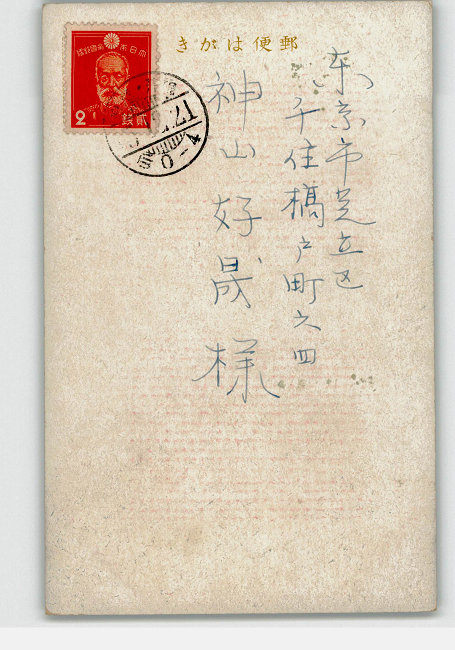 郵便はがき
東京市足立区
千住橋戸町六四
神山好晟様
大日本帝國郵便
2
貳銭
17
0-4